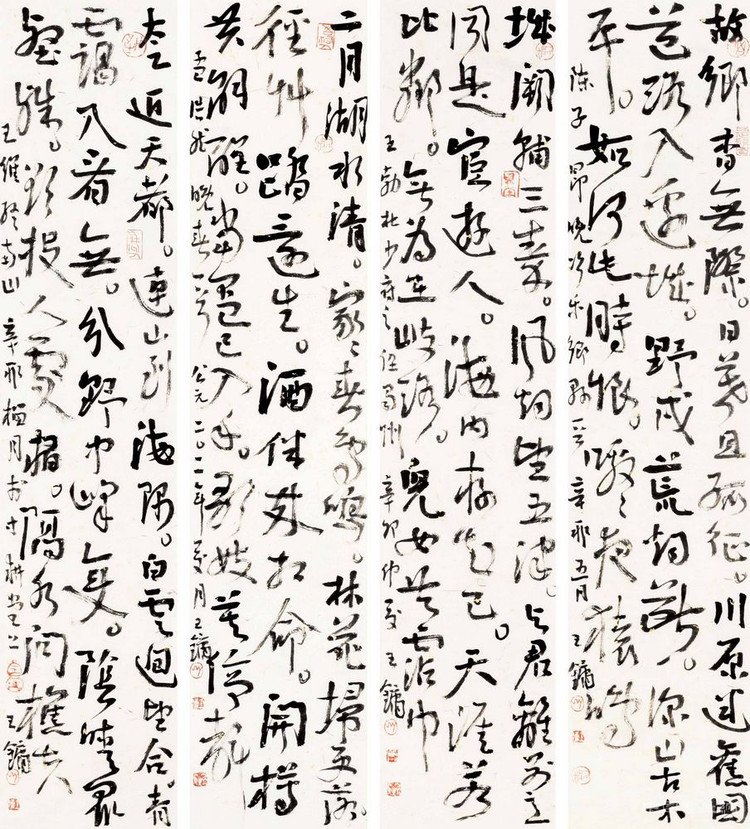 故鄉杳無際。日暮且孤征。川原迷舊國
道路入邊城。野戍荒烟斷。深山古木
平。如何此時恨。噭々夜猿鳴
陳子昂晚次樂鄉縣一首 辛卯五月王鏞
城闕輔三秦。風烟望五津。與君離別意
同是宦遊人。海内存知己。天涯若
比鄰。無為在岐路。兒女共霑巾
王勃杜少府之任蜀州 辛卯仲夏王鏞
二月湖水清。家々春鳥鳴。林花掃更落。
徑艸踏還生。酒伴來相命。開樽
共解酲。當盃已入手。歌妓莫停聲
孟浩然晚春一首 公元二〇一一年夏月王鏞
太乙近天都。連山到海隅。白雲迴望合。青
靄入看無。分野中峰變。陰晴眾
壑殊。欲投人處宿。隔水問樵夫
王維終南山 辛卯榴月於寸耕堂上 王鏞